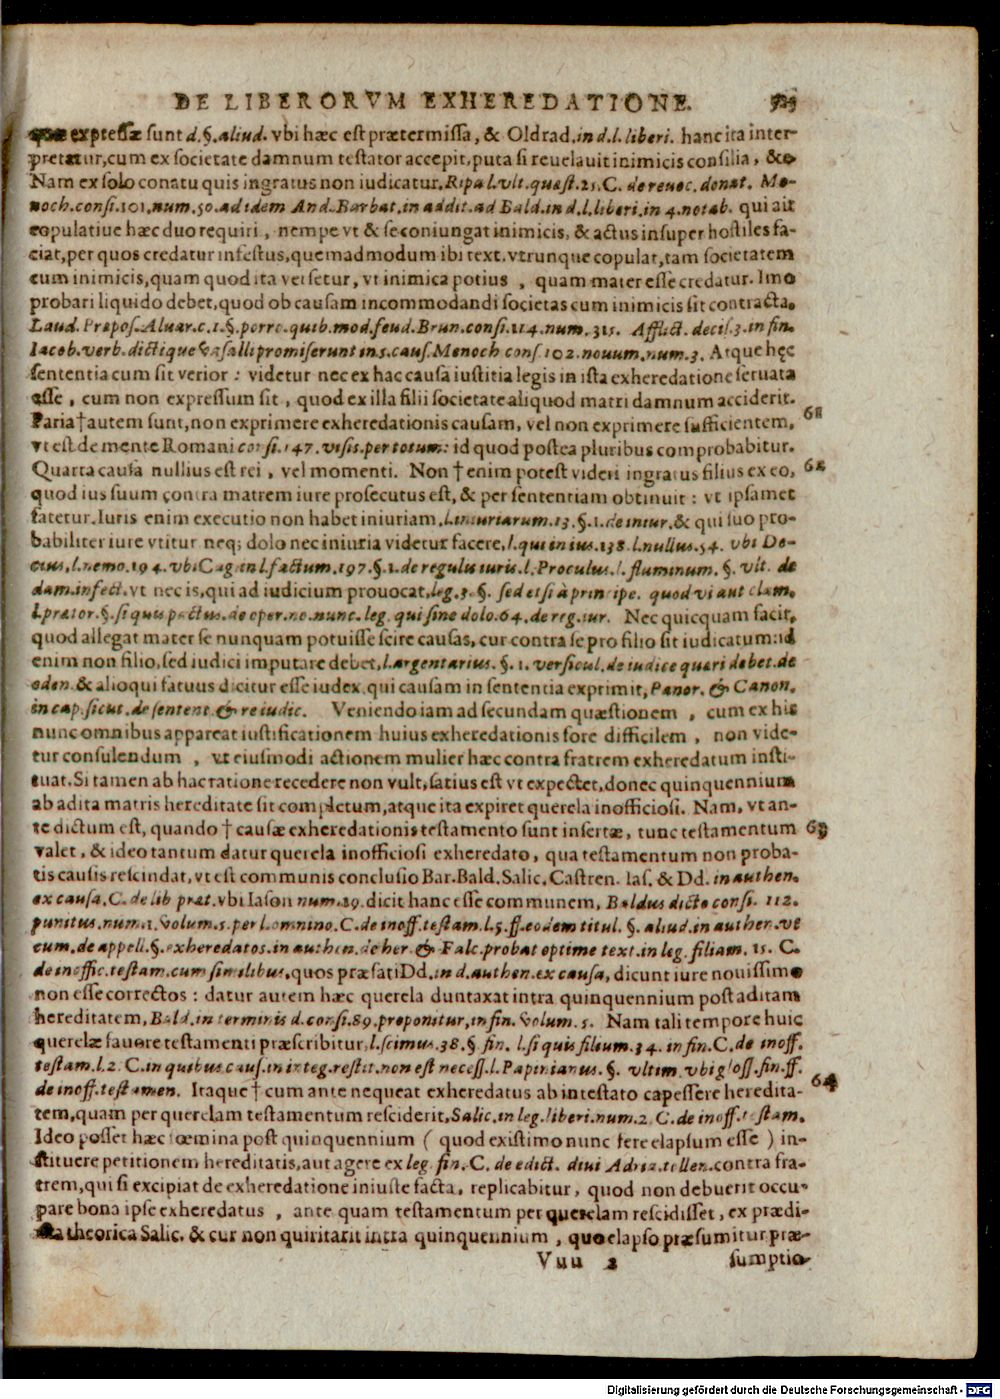 DE LIBERORVM EXHEREDATIONE.
quæ expressæ sunt d. §. aliud. vbi hæc est prætermissa, & Oldrad. in d. l. liberi. hanc ita inter-
pretatur, cum ex societate damnum testator accepit, puta si reuelauit inimicis consilia, &c
Nam ex solo conatu quis ingratus non iudicatur. Ripa l. vlt. quæst. 21. C. de reuoc. donat. Me-
noch. consi. 101. num. 50. ad idem And. Barbat. in addit. ad Bald. in d. l. liberi. in 4. notab. qui ait
copulatiue hæc duo requiri, nempe vt & se coniungat inimicis, & actus insuper hostiles fa-
ciat, per quos credatur infestus, quemadmodum ibi text. vtrunque copulat, tam societatem
cum inimicis, quam quod ita versetur, vt inimica potius, quam mater esse credatur. Imo
probari liquido debet, quod ob causam incommodandi societas cum inimicis sit contracta.
Laud. Prapos. Aluar. c. 1. §. porro. quib. mod. feud. Brun. consi. 114. num. 315. Afflict. decis. 3. in fin.
Iacob. verb. dictique vasalli promiserunt in 5. caus. Menoch. cons. 102. nouum. num. 3. Atque hęc
sententia cum sit verior: videtur nec ex hac causa iustitia legis in ista exheredatione seruata
esse, cum non expressum sit, quod ex illa filii societate aliquod matri damnum acciderit.
Paria † autem sunt, non exprimere exheredationis causam, vel non exprimere sufficientem, 61
vt est de mente Romani consi. 147. visis. per totum: id quod postea pluribus comprobabitur.
Quarta causa nullius est rei, vel momenti. Non † enim potest videri ingratus filius ex eo, 62
quod ius suum contra matrem iure prosecutus est, & per sententiam obtinuit: vt ipsamet
fatetur. Iuris enim executio non habet iniuriam. l. iniuriarum. 13. §. 1. de iniur. & qui suo pro-
babiliter iure vtitur neq; dolo nec iniuria videtur facere, l. qui in ius. 138. l. nullus. 54. vbi De-
cius, l. nemo. 194. vbi Cagn. l. factum. 197. §. 1. de regulis iuris. l. Proculus. l. fluminum. §. vlt. de
dam. infect. vt nec is, qui ad iudicium prouocat, leg. 3. §. sed etsi à principe. quod vi aut clam.
l. prætor. §. si quis pactus. de oper. no. nunc. leg. qui sine dolo. 64. de reg. iur. Nec quicquam facit,
quod allegat mater se nunquam potuisse scire causas, cur contra se pro filio sit iudicatum: id
enim non filio, sed iudici imputare debet, l. argentarius. §. 1. versicul. de iudice queri debet. de
eden. & alioqui fatuus dicitur esse iudex, qui causam in sententia exprimit, Panor. & Canon.
in cap. sicut. de sentent. & re iudic. Veniendo iam ad secundam quæstionem, cum ex his
nunc omnibus appareat iustificationem huius exheredationis fore difficilem, non vide-
tur consulendum, vt eiusmodi actionem mulier hæc contra fratrem exheredatum insti-
tuat. Si tamen ab hac ratione recedere non vult, satius est vt expectet, donec quinquennium
ab adita matris hereditate sit completum, atque ita expiret querela inofficiosi. Nam, vt an-
te dictum est, quando † causæ exheredationis testamento sunt insertæ, tunc testamentum 63
valet, & ideo tantum datur querela inofficiosi exheredato, qua testamentum non proba-
tis causis rescindat, vt est communis conclusio Bar. Bald. Salic. Castren. Ias. & Dd. in authen.
ex causa. C. de lib præt. vbi Iason num. 19. dicit hanc esse communem, Baldus dicto consi. 112.
punitus. num. 1. volum. 5. per l. omnino. C. de inoff. testam. l. 5. ff. eodem titul. §. aliud. in authen. vt
cum. de appell. §. exheredatos. in authen. de her. & Falc. probat optime text. in leg. filiam. 15. C.
de inoffic. testam. cum similibus, quos præfati Dd. in d. authen. ex causa, dicunt iure nouissimo
non esse correctos: datur autem hæc querela duntaxat intra quinquennium post aditam
hereditatem, Bald. in terminis d. consi. 89. proponitur, in fin. volum. 5. Nam tali tempore huic
querelæ fauore testamenti præscribitur, l. scimus. 38. § fin. l. si quis filium. 34. in fin. C. de inoff.
testam. l. 2. C. in quibus caus. in integ. restit. non est necess. l. Papinianus. §. vltim. vbi gloss. fin. ff.
de inoff. testamen. Itaque † cum ante nequeat exheredatus ab intestato capessere heredita- 64
tem, quam per querelam testamentum resciderit, Salic. in leg. liberi. num. 2. C. de inoff. testam.
Ideo posset hæc fœmina post quinquennium ( quod existimo nunc fere elapsum esse ) in-
stituere petitionem hereditatis, aut agere ex leg. fin. C. de edict. diui Adria. tollen. contra fra-
trem, qui si excipiat de exheredatione iniuste facta, replicabitur, quod non debuerit occu-
pare bona ipse exheredatus, ante quam testamentum per querelam rescidisset, ex prædi-
cta theorica Salic. & cur non quiritarit intra quinquennium, quo elapso præsumitur, præ-
Vuu 2 sumptio
Digitalisierung gefördert durch die Deutsche Forschungsgemeinschaft - DFG